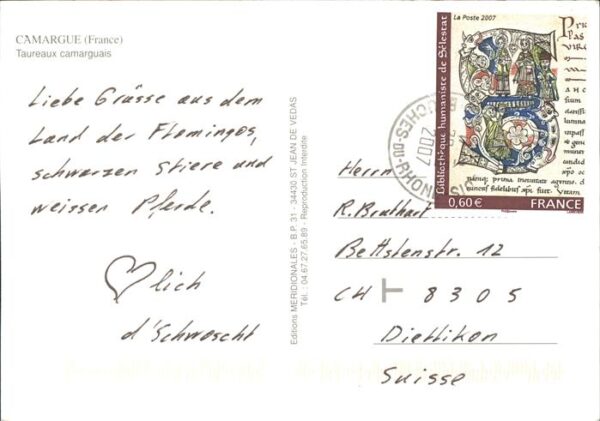 CAMARGUE (France)
Taureaux camarguais
Liebe Grüsse aus dem
Land der Flamingos,
schwarzen Stiere und
weissen Pferde.
♡lich
d'Schwoscht
Editions MERIDIONALES - B.P. 31 - 34430 ST JEAN DE VEDAS
Tél. : 04.67.27.65.89 - Reproduction Interdite
La Poste 2007
Bibliothèque humaniste de Sélestat
0,60 €
FRANCE
BOUCHES-DU-RHONE
2007
Herrn
R. Brathart
Bettstenstr. 12
CH T 8305
Dietlikon
Suisse